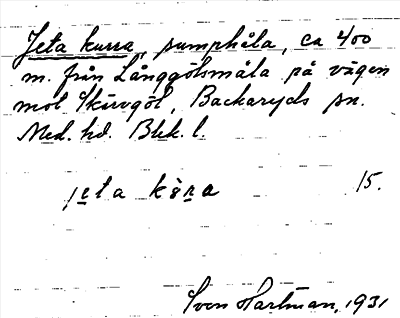 Jeta kurra, sumphåla, ca 400
m. från Långgölsmåla på vägen
mot Skörvgöl, Backaryds sn.
Med. hd. Blek. l.
jeta köra 15.
Sven Hartman, 1931